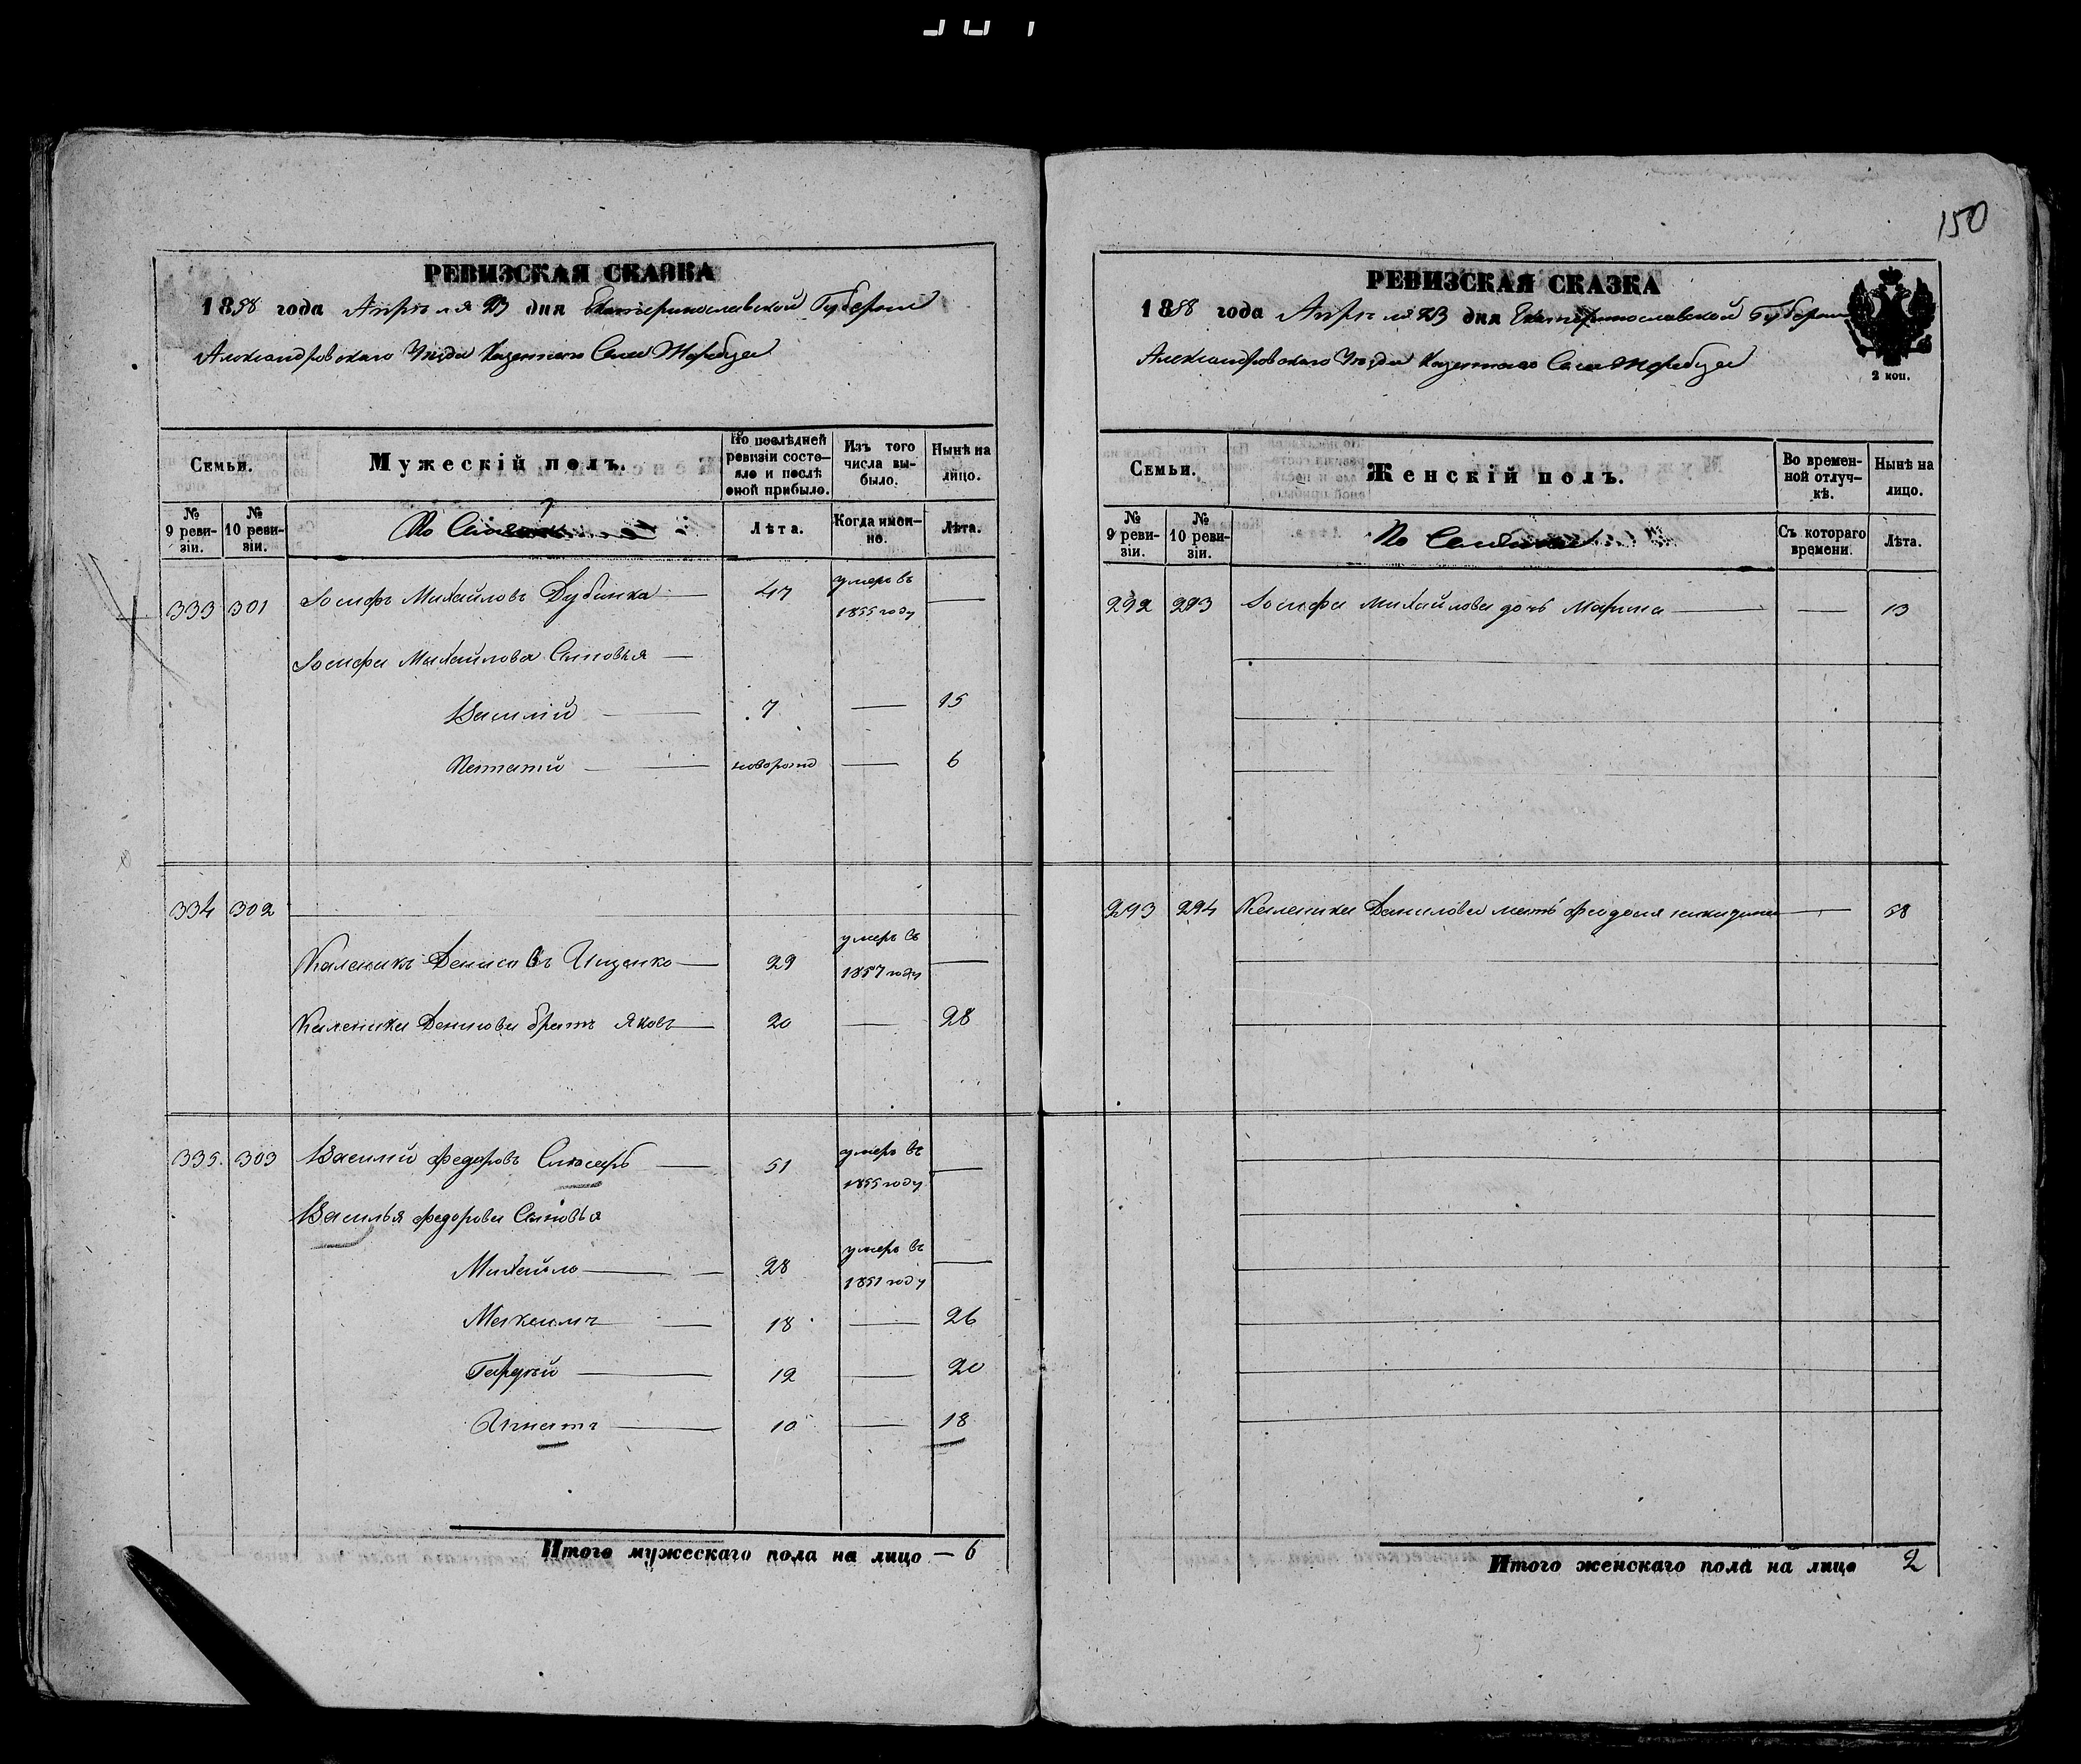 150
РЕВИЗСКАЯ СКАЗКА
1858 года Апрѣля 23 дня Екатеринославской Губернии
Александровскаго Уѣзда Казеннаго Села Жеребца
Семьи.
Мужескій полъ.
По послѣдней ревизіи состояло и послѣ оной прибыло.
Изъ того числа выбыло.
Нынѣ на лицо.
№ 9 ревизіи.
№ 10 ревизіи.
По
Лѣта.
Когда именно.
Лѣта.
333 301 Іосифъ Михайловъ Дубинка 47 умеръ въ 1855 году
Іосифа Михайлова Сыновья
Василий 7 15
новорожд 6
334 302
Каленикъ Денисовъ Ищенко 29 умеръ въ 1857 году
Каленика Денисова братъ Яковъ 20 28
335. 303 Василий Федоровъ Слюсарь 51 умеръ въ 1855 году
Василья Федорова Сыновья
Михайло 28 умеръ въ 1851 году
Максимъ 18 26
Гордѣй 12 20
Игнатъ 10 18
Итого мужескаго пола на лицо — 6
РЕВИЗСКАЯ СКАЗКА
1858 года Апрѣля 23 дня Екатеринославской Губернии
Александровскаго Уѣзда Казеннаго Села Жеребца
2 коп.
Семьи.
Женскій полъ.
Во временной отлучкѣ.
Нынѣ на лицо.
№ 9 ревизіи.
№ 10 ревизіи.
По
Съ котораго времени.
Лѣта.
292 293 Іосифа Михайлова дочь Марина 13
293 294 Каленика Данилова мать 58
Итого женскаго пола на лицо 2